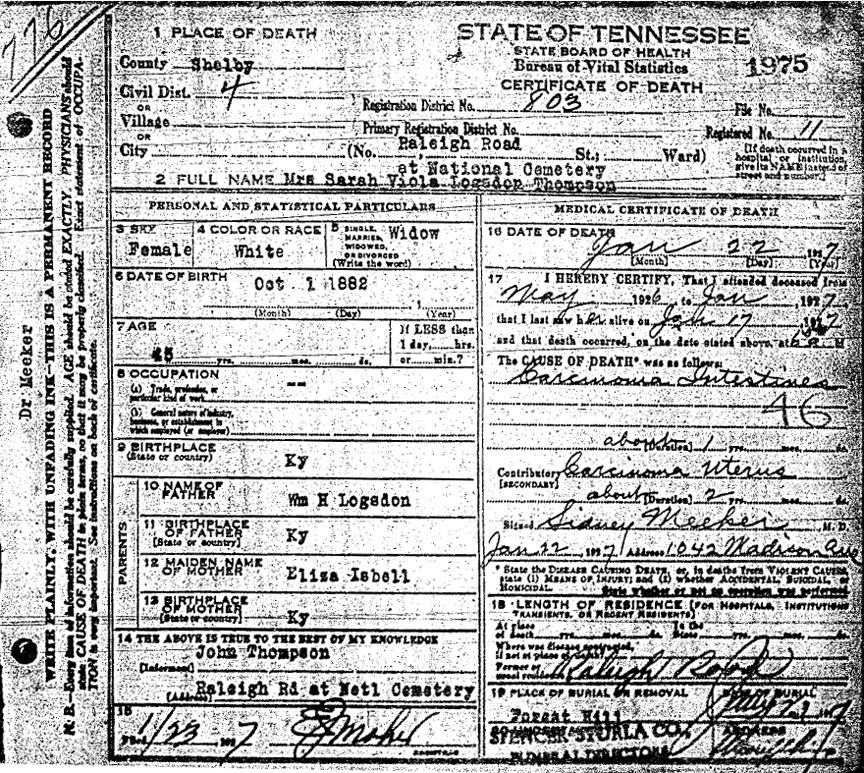 776
1 PLACE OF DEATH
County Shelby
Civil Dist. 4
OR
Village
OR
City
STATE OF TENNESSEE
STATE BOARD OF HEALTH
Bureau of Vital Statistics
1975
CERTIFICATE OF DEATH
Registration District No. 803
File No.
Primary Registration District No.
Registered No. 11
(No. Raleigh Road St.; Ward)
at National Cemetery
[If death occurred in a
hospital or institution,
give its NAME instead of
street and number.]
2 FULL NAME Mrs Sarah Viola Logsdon Thompson
PERSONAL AND STATISTICAL PARTICULARS
3 SEX
Female
4 COLOR OR RACE
White
5 SINGLE,
MARRIED,
WIDOWED,
OR DIVORCED
(Write the word)
Widow
6 DATE OF BIRTH
Oct 1 1882
(Month) (Day) (Year)
7 AGE
45 yrs. mos. ds.
If LESS than
1 day, hrs.
or min.?
8 OCCUPATION
(a) Trade, profession, or
particular kind of work --
(b) General nature of industry,
business, or establishment in
which employed (or employer)
9 BIRTHPLACE
(State or country) Ky
PARENTS
10 NAME OF
FATHER Wm H Logsdon
11 BIRTHPLACE
OF FATHER
[State or country] Ky
12 MAIDEN NAME
OF MOTHER Eliza Isbell
13 BIRTHPLACE
OF MOTHER
(State or country) Ky
14 THE ABOVE IS TRUE TO THE BEST OF MY KNOWLEDGE
[Informant] John Thompson
(Address) Raleigh Rd at Natl Cemetery
15
Filed 1/23 1927
MEDICAL CERTIFICATE OF DEATH
16 DATE OF DEATH
Jan 22 1927
(Month) (Day) (Year)
17 I HEREBY CERTIFY, That I attended deceased from
May 1926 to Jan 1927
that I last saw her alive on Jan 17 1927
and that death occurred, on the date stated above, at M
The CAUSE OF DEATH* was as follows:
Carcinoma Intestines
46
about (Duration) 1 yrs. mos. ds.
Contributory Carcinoma Uterus
[SECONDARY]
about (Duration) 2
Signed Sidney Meeker M. D.
Jan 22 1927 Address 1042 Madison Ave
* State the DISEASE CAUSING DEATH, or, in deaths from VIOLENT CAUSES,
state (1) MEANS OF INJURY; and (2) whether ACCIDENTAL, SUICIDAL, or
HOMICIDAL. State whether or not an operation was performed
18 LENGTH OF RESIDENCE (FOR HOSPITALS, INSTITUTIONS
TRANSIENTS, OR RECENT RESIDENTS)
At place
of death yrs. mos. ds.
In the
State yrs. mos. ds.
Where was disease contracted,
if not at place of death?
Former or
usual residence Raleigh Road
19 PLACE OF BURIAL OR REMOVAL
Forest Hill
DATE OF BURIAL
1927
20 UNDERTAKER
STURLA CO.,
FUNERAL DIRECTORS
ADDRESS
Dr Meeker
WRITE PLAINLY, WITH UNFADING INK—THIS IS A PERMANENT RECORD
N. B.—Every item of information should be carefully supplied. AGE should be stated EXACTLY. PHYSICIANS should
state CAUSE OF DEATH in plain terms, so that it may be properly classified. Exact statement of OCCUPA-
TION is very important. See instructions on back of certificate.